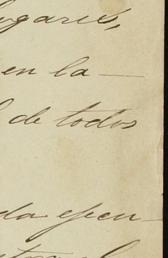 ogares,
en la
l de todos
da ejecu-